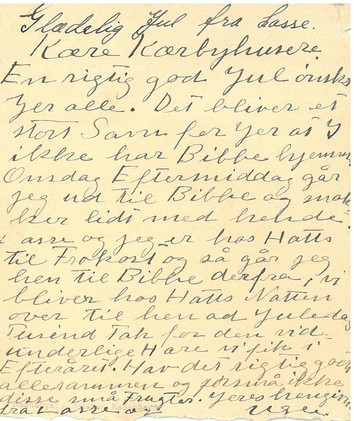 Glædelig Jul fra Lasse.
Kære Kærbyhusere
En rigtig god Jul ønskes
Jer alle. Det bliver et
stort Savn for Jer at I
ikke har Bibbe hjemme
Onsdag Eftermiddag går
jeg ud til Bibbe og snak-
ker lidt med hende.
Lasse og jeg er hos Hatts
til Frokost og så går jeg
hen til Bibbe derfra, vi
bliver hos Hatts Natten
over til hen ad Juledag
Tusind Tak for den vid-
underlige Hare vi fik i
Efteråret. Hav det rigtig godt
allesammen og forsmå ikke
disse små Frugter. Jeres hengivne
fra Lasse og